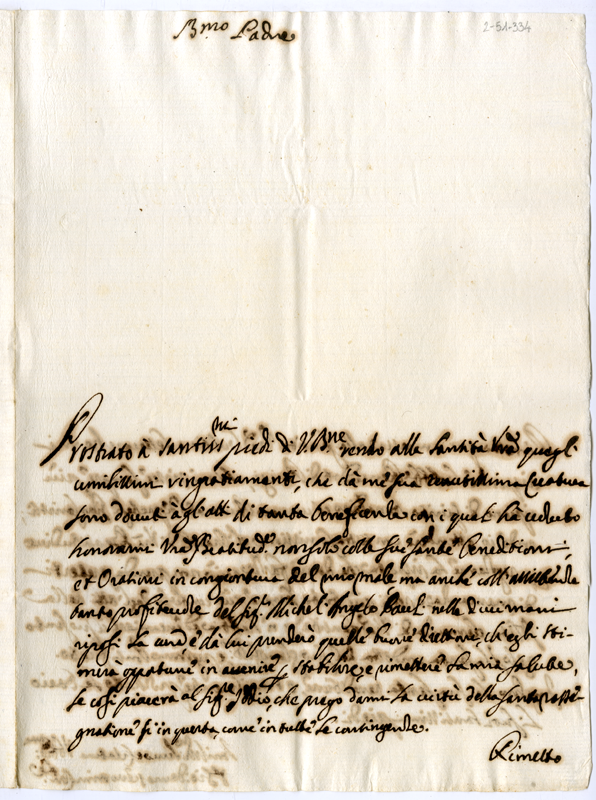 B.mo Padre
2-51-334
Prostrato à santiss.mi piedi di V. B.ne rendo alla Santità Vra quegli
umilissimi ringratiamenti, che dà me sua Creatura
sono douuti à gl'atti di tanta beneficenza con i quali hà uoluto
honorarmi Vra Beatitud.e non solo colle sue sante Beneditioni,
et Orationi in congiontura del mio male, ma anche coll'
tanto profitteuole del Sig.r Michel' Angelo nelle di cui mani
riposi la cura, e dà lui prenderò quelle buone direttioni, ch'egli sti-
merà opportune in auuenire p stabilire, e rimettere la mia salute,
se così piacerà al Sig.re Iddio, che prego darmi la uirtù della santa rasse-
gnatione sì in questa, come in tutte le contingenze.
Rimetto